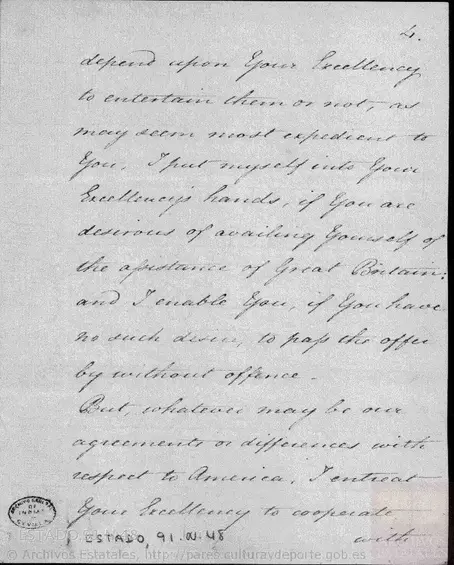 4.
depend upon Your Excellency
to entertain them or not, as
may seem most expedient to
You. I put myself into Your
Excellency's hands, if You are
desirous of availing Yourself of
the assistance of Great Britain:
and I enable You, if You have
no such desire, to pass the offer
by without offence.
But, whatever may be our
agreements or differences with
respect to America, I entreat
Your Excellency to cooperate
with
ARCHIVO GENERAL
DE
INDIAS
SEVILLA
ESTADO, 91. N. 48
© Archivos Estatales, http://pares.culturaydeporte.gob.es